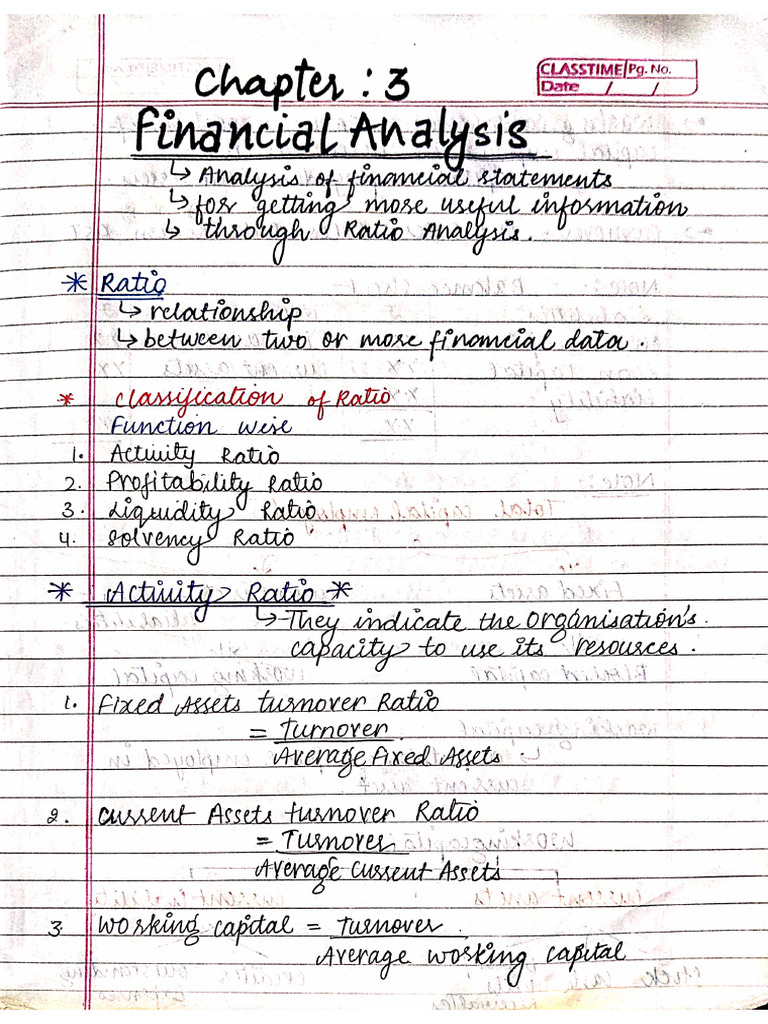 Chapter : 3
CLASSTIME Pg. No.
Date / /
Financial Analysis
↳ Analysis of financial statements
↳ for getting more useful information
↳ through Ratio Analysis.
* Ratio
↳ relationship
↳ between two or more financial data.
* Classification of Ratio
Function wise
1. Activity Ratio
2. Profitability Ratio
3. Liquidity Ratio
4. Solvency Ratio
* Activity Ratio *
↳ They indicate the organisation's
capacity to use its resources.
1. Fixed Assets turnover Ratio
= Turnover
Average Fixed Assets
2. Current Assets turnover Ratio
= Turnover
Average Current Assets
3. Working capital = Turnover
Average working capital